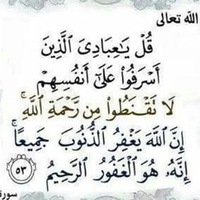 الله تعالى
قُلْ يَٰعِبَادِىَ ٱلَّذِينَ
أَسْرَفُوا۟ عَلَىٰٓ أَنفُسِهِمْ
لَا تَقْنَطُوا۟ مِن رَّحْمَةِ ٱللَّهِ ۚ
إِنَّ ٱللَّهَ يَغْفِرُ ٱلذُّنُوبَ جَمِيعًا ۚ
إِنَّهُۥ هُوَ ٱلْغَفُورُ ٱلرَّحِيمُ ٥٣